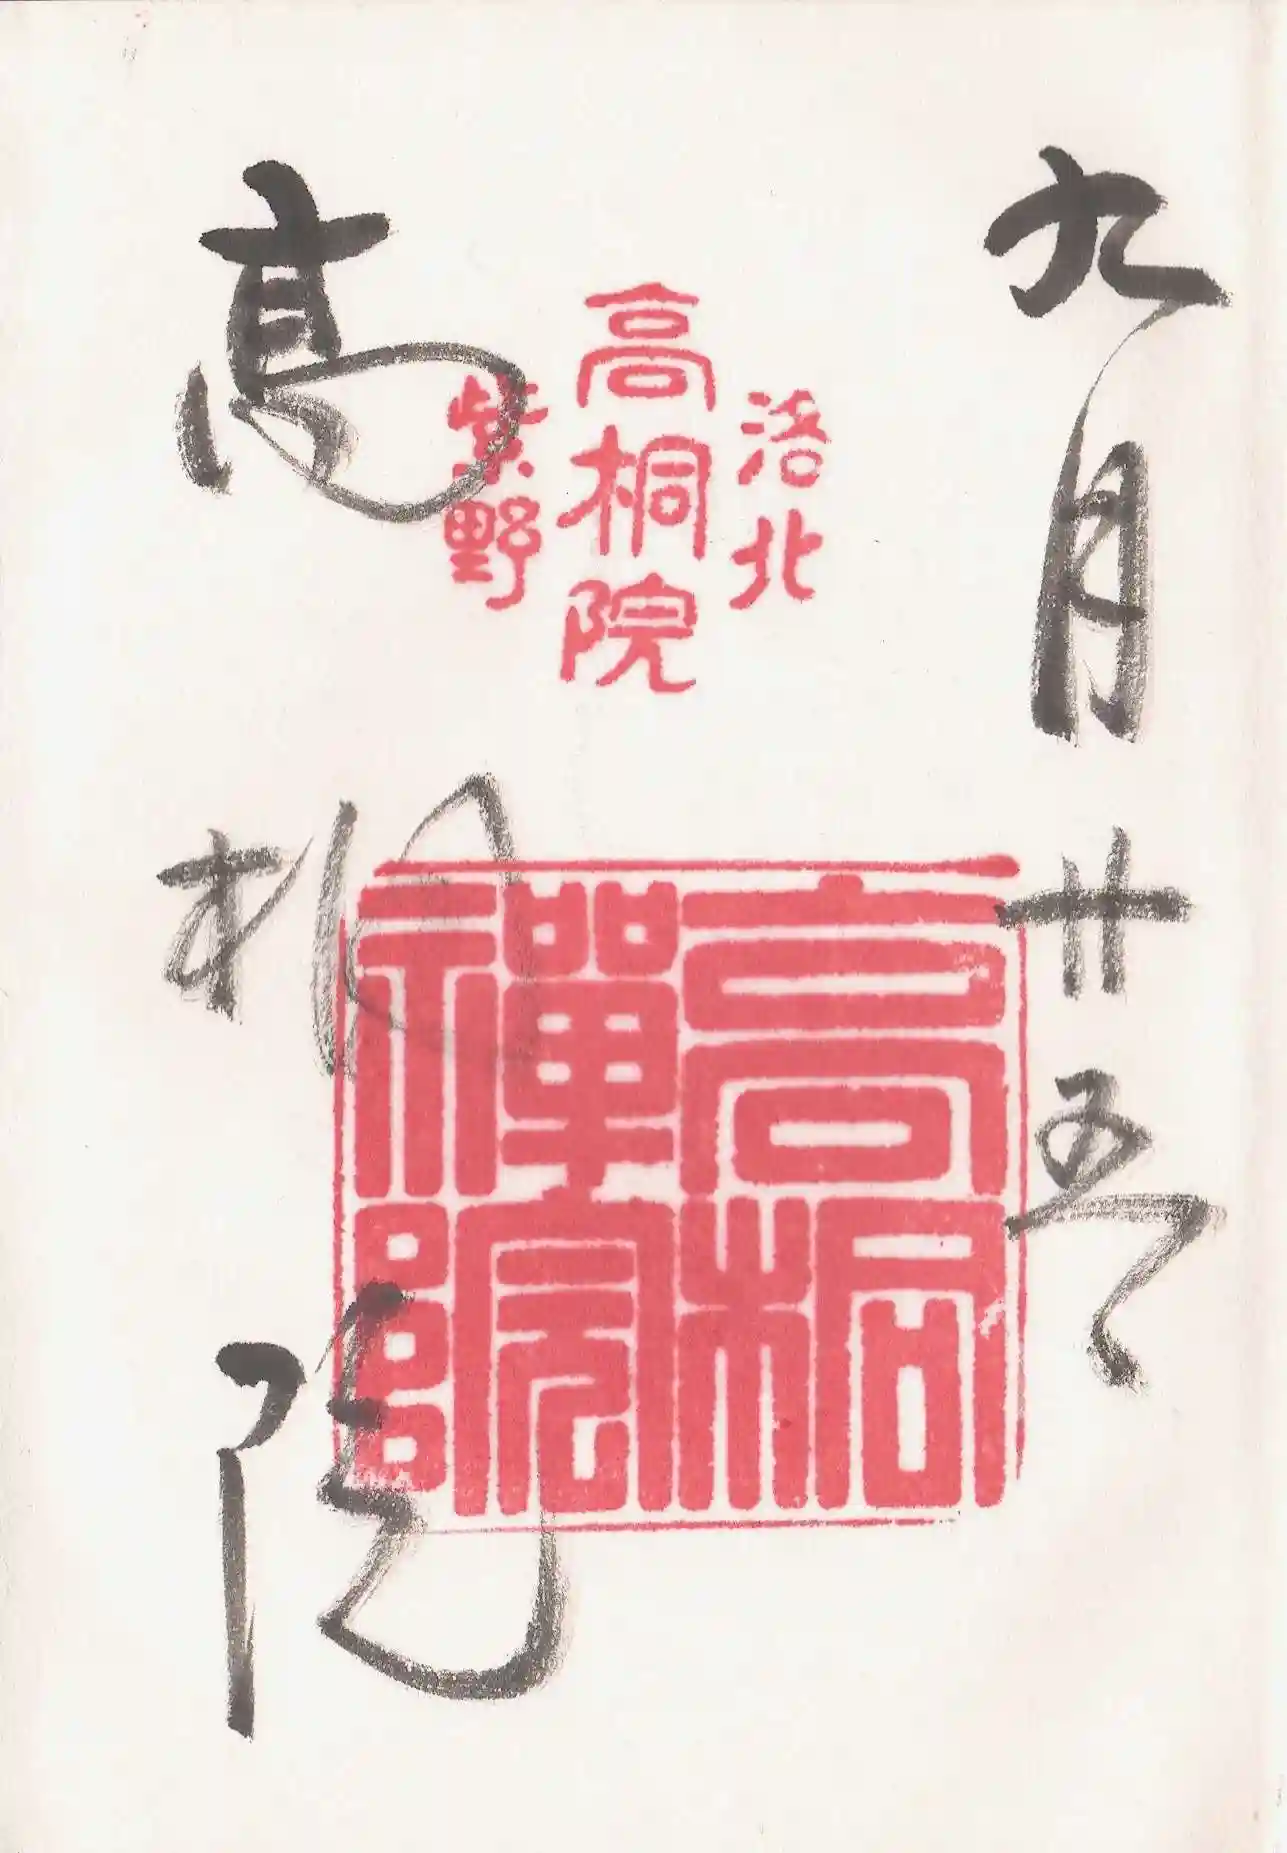 九月廿五
洛北
高桐院
紫野
高桐禅院
高桐院